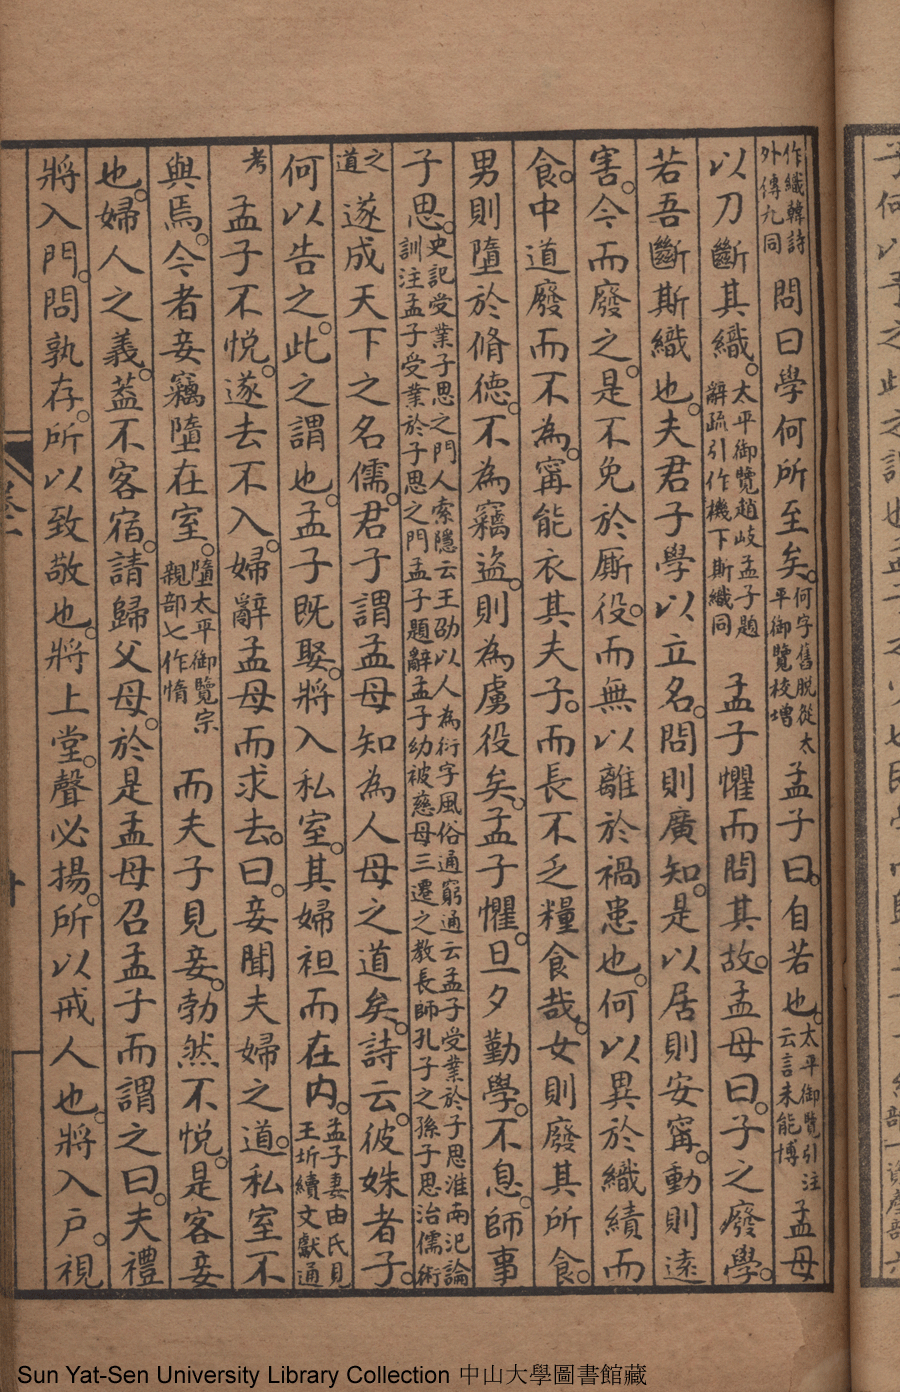 作織韓詩外傳九同問曰學何所至矣。何字舊脫從太平御覽校增孟子曰。自若也。太平御覽引注云言未能博孟母
以刀斷其織。太平御覽趙岐孟子題辭疏引作機下斯織同孟子懼而問其故。孟母曰。子之廢學。
若吾斷斯織也。夫君子學以立名。問則廣知。是以居則安寧。動則遠
害。今而廢之。是不免於厮役。而無以離於禍患也。何以異於織績而
食。中道廢而不為。寗能衣其夫子。而長不乏糧食哉。女則廢其所食。
男則墮於脩德。不為竊盗。則為虜役矣。孟子懼。旦夕勤學。不息。師事
子思。史記受業子思之門人索隱云王劭以人為衍字風俗通窮通云孟子受業於子思淮南氾論訓注孟子受業於子思之門孟子題辭孟子幼被慈母三遷之教長師孔子之孫子思治儒術
之道遂成天下之名儒。君子謂孟母知為人母之道矣。詩云。彼姝者子。
何以告之。此之謂也。孟子既娶。將入私室。其婦袒而在内。孟子妻由氏見王圻續文獻通
考孟子不悦。遂去不入。婦辭孟母而求去。曰。妾聞夫婦之道。私室不
與焉。今者妾竊墮在室。墮太平御覽宗親部七作惰而夫子見妾。勃然不悦。是客妾
也。婦人之義。葢不客宿。請歸父母。於是孟母召孟子而謂之曰。夫禮
將入門。問孰存。所以致敬也。將上堂。聲必揚。所以戒人也。將入户。視
Sun Yat-Sen University Library Collection 中山大學圖書館藏